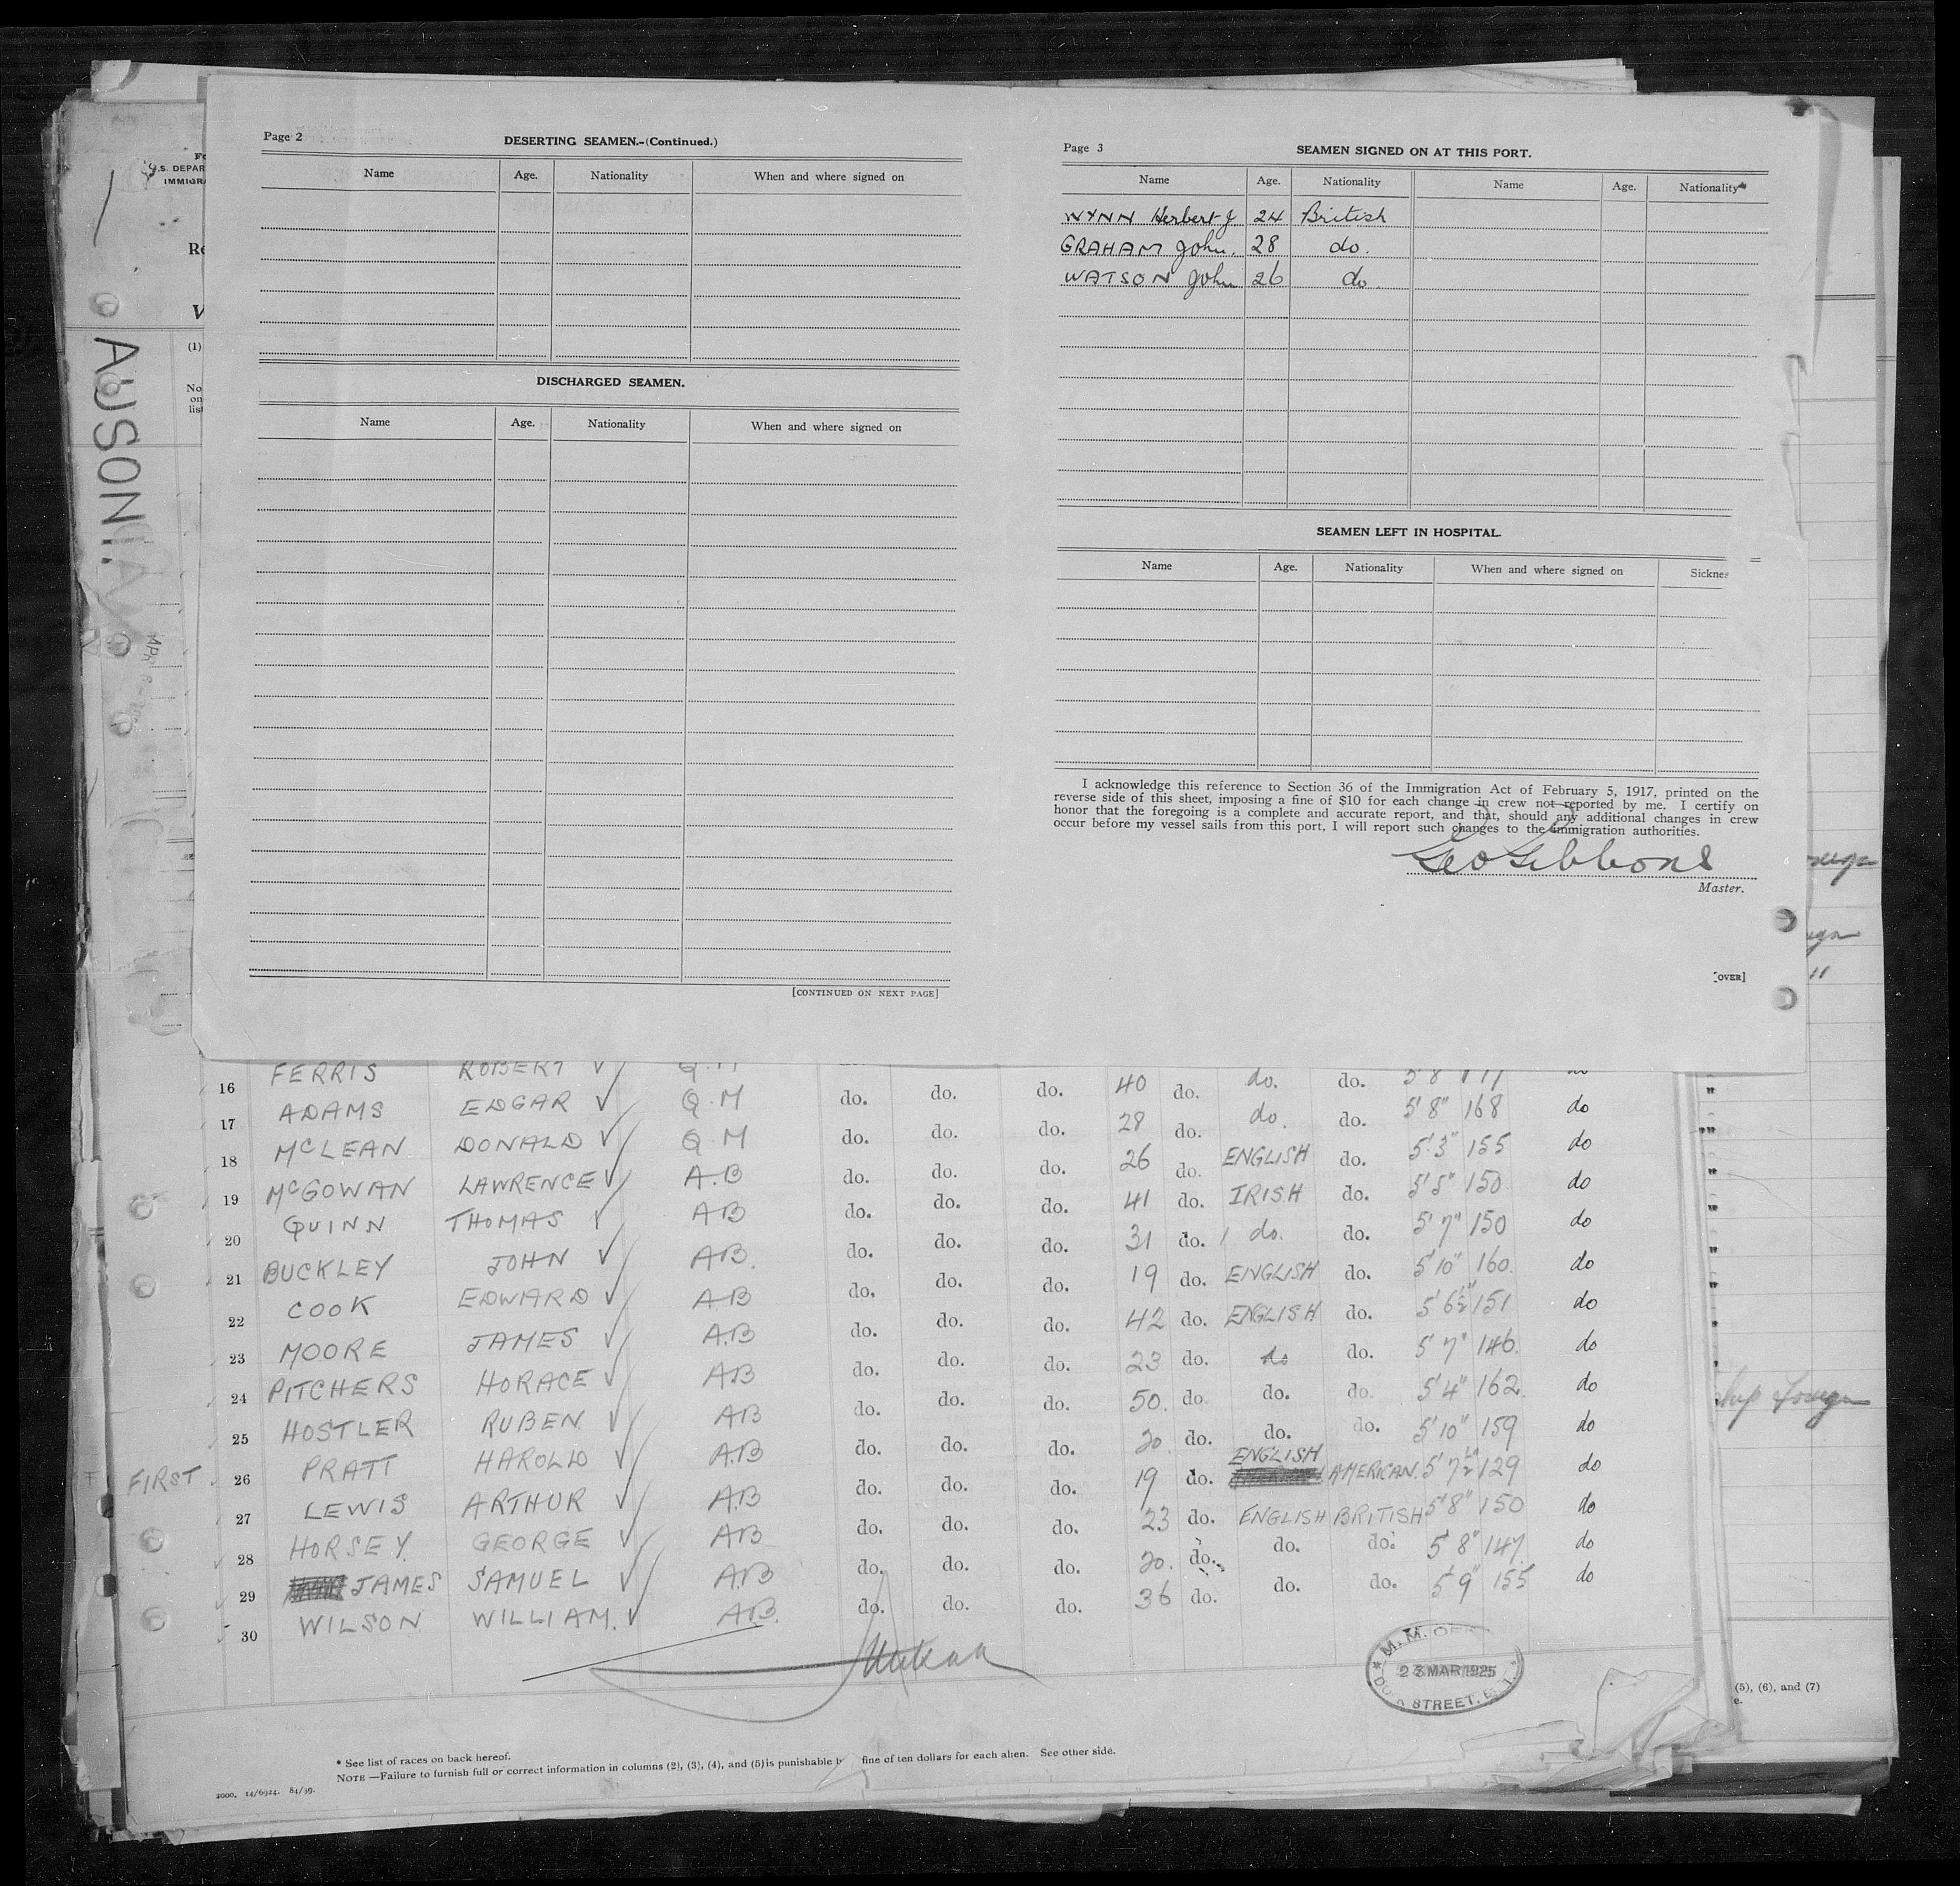 Page 2
DESERTING SEAMEN.-(Continued.)
Name Age. Nationality When and where signed on
DISCHARGED SEAMEN.
Name Age. Nationality When and where signed on
[CONTINUED ON NEXT PAGE]
Page 3
SEAMEN SIGNED ON AT THIS PORT.
Name Age. Nationality Name Age. Nationality
WYNN Herbert J 24 British
GRAHAM John. 28 do.
WATSON John 26 do.
SEAMEN LEFT IN HOSPITAL.
Name Age. Nationality When and where signed on Sicknes
I acknowledge this reference to Section 36 of the Immigration Act of February 5, 1917, printed on the
reverse side of this sheet, imposing a fine of $10 for each change in crew not reported by me. I certify on
honor that the foregoing is a complete and accurate report, and that, should any additional changes in crew
occur before my vessel sails from this port, I will report such changes to the immigration authorities.
Geo Gibbons
Master.
[OVER]
S. DEPAR
IMMIGRA
(1)
No
on
list
AUSONIA
16 FERRIS ROBERT Q.M do. do. do. 40 do. do. do. 5'8"
17 ADAMS EDGAR Q.M do. do. do. 28 do. do. do. 5'8" 168 do
18 McLEAN DONALD Q.M do. do. do. 26 do. ENGLISH do. 5'3" 155 do
19 McGOWAN LAWRENCE A.B do. do. do. 41 do. IRISH do. 5'5" 150 do
20 QUINN THOMAS AB do. do. do. 31 do. do. do. 5'7" 150 do
21 BUCKLEY JOHN AB. do. do. do. 19 do. ENGLISH do. 5'10" 160. do
22 COOK EDWARD AB do. do. do. 42 do. ENGLISH do. 5'6½" 151 do
23 MOORE JAMES A.B do. do. do. 23 do. do do. 5'7" 146. do
24 PITCHERS HORACE AB do. do. do. 50. do. do. do. 5'4" 162. do
25 HOSTLER RUBEN AB do. do. do. 20. do. do. do. 5'10" 159 do
FIRST 26 PRATT HAROLD A.B do. do. do. 19 do. ENGLISH AMERICAN. 5'7½" 129 do
27 LEWIS ARTHUR AB do. do. do. 23 do. ENGLISH BRITISH 5'8" 150 do
28 HORSEY. GEORGE AB do. do. do. 20. do. do. do. 5'8" 147. do
29 JAMES SAMUEL A.B do. do. do. 36 do. do. do. 5'9" 155 do
30 WILSON WILLIAM. AB. do. do. do.
M. M. OF
23 MAR 1925
STREET, E.
* See list of races on back hereof.
NOTE —Failure to furnish full or correct information in columns (2), (3), (4), and (5) is punishable b fine of ten dollars for each alien. See other side.
2000. 14/6924. 84/39.
(5), (6), and (7)
e.